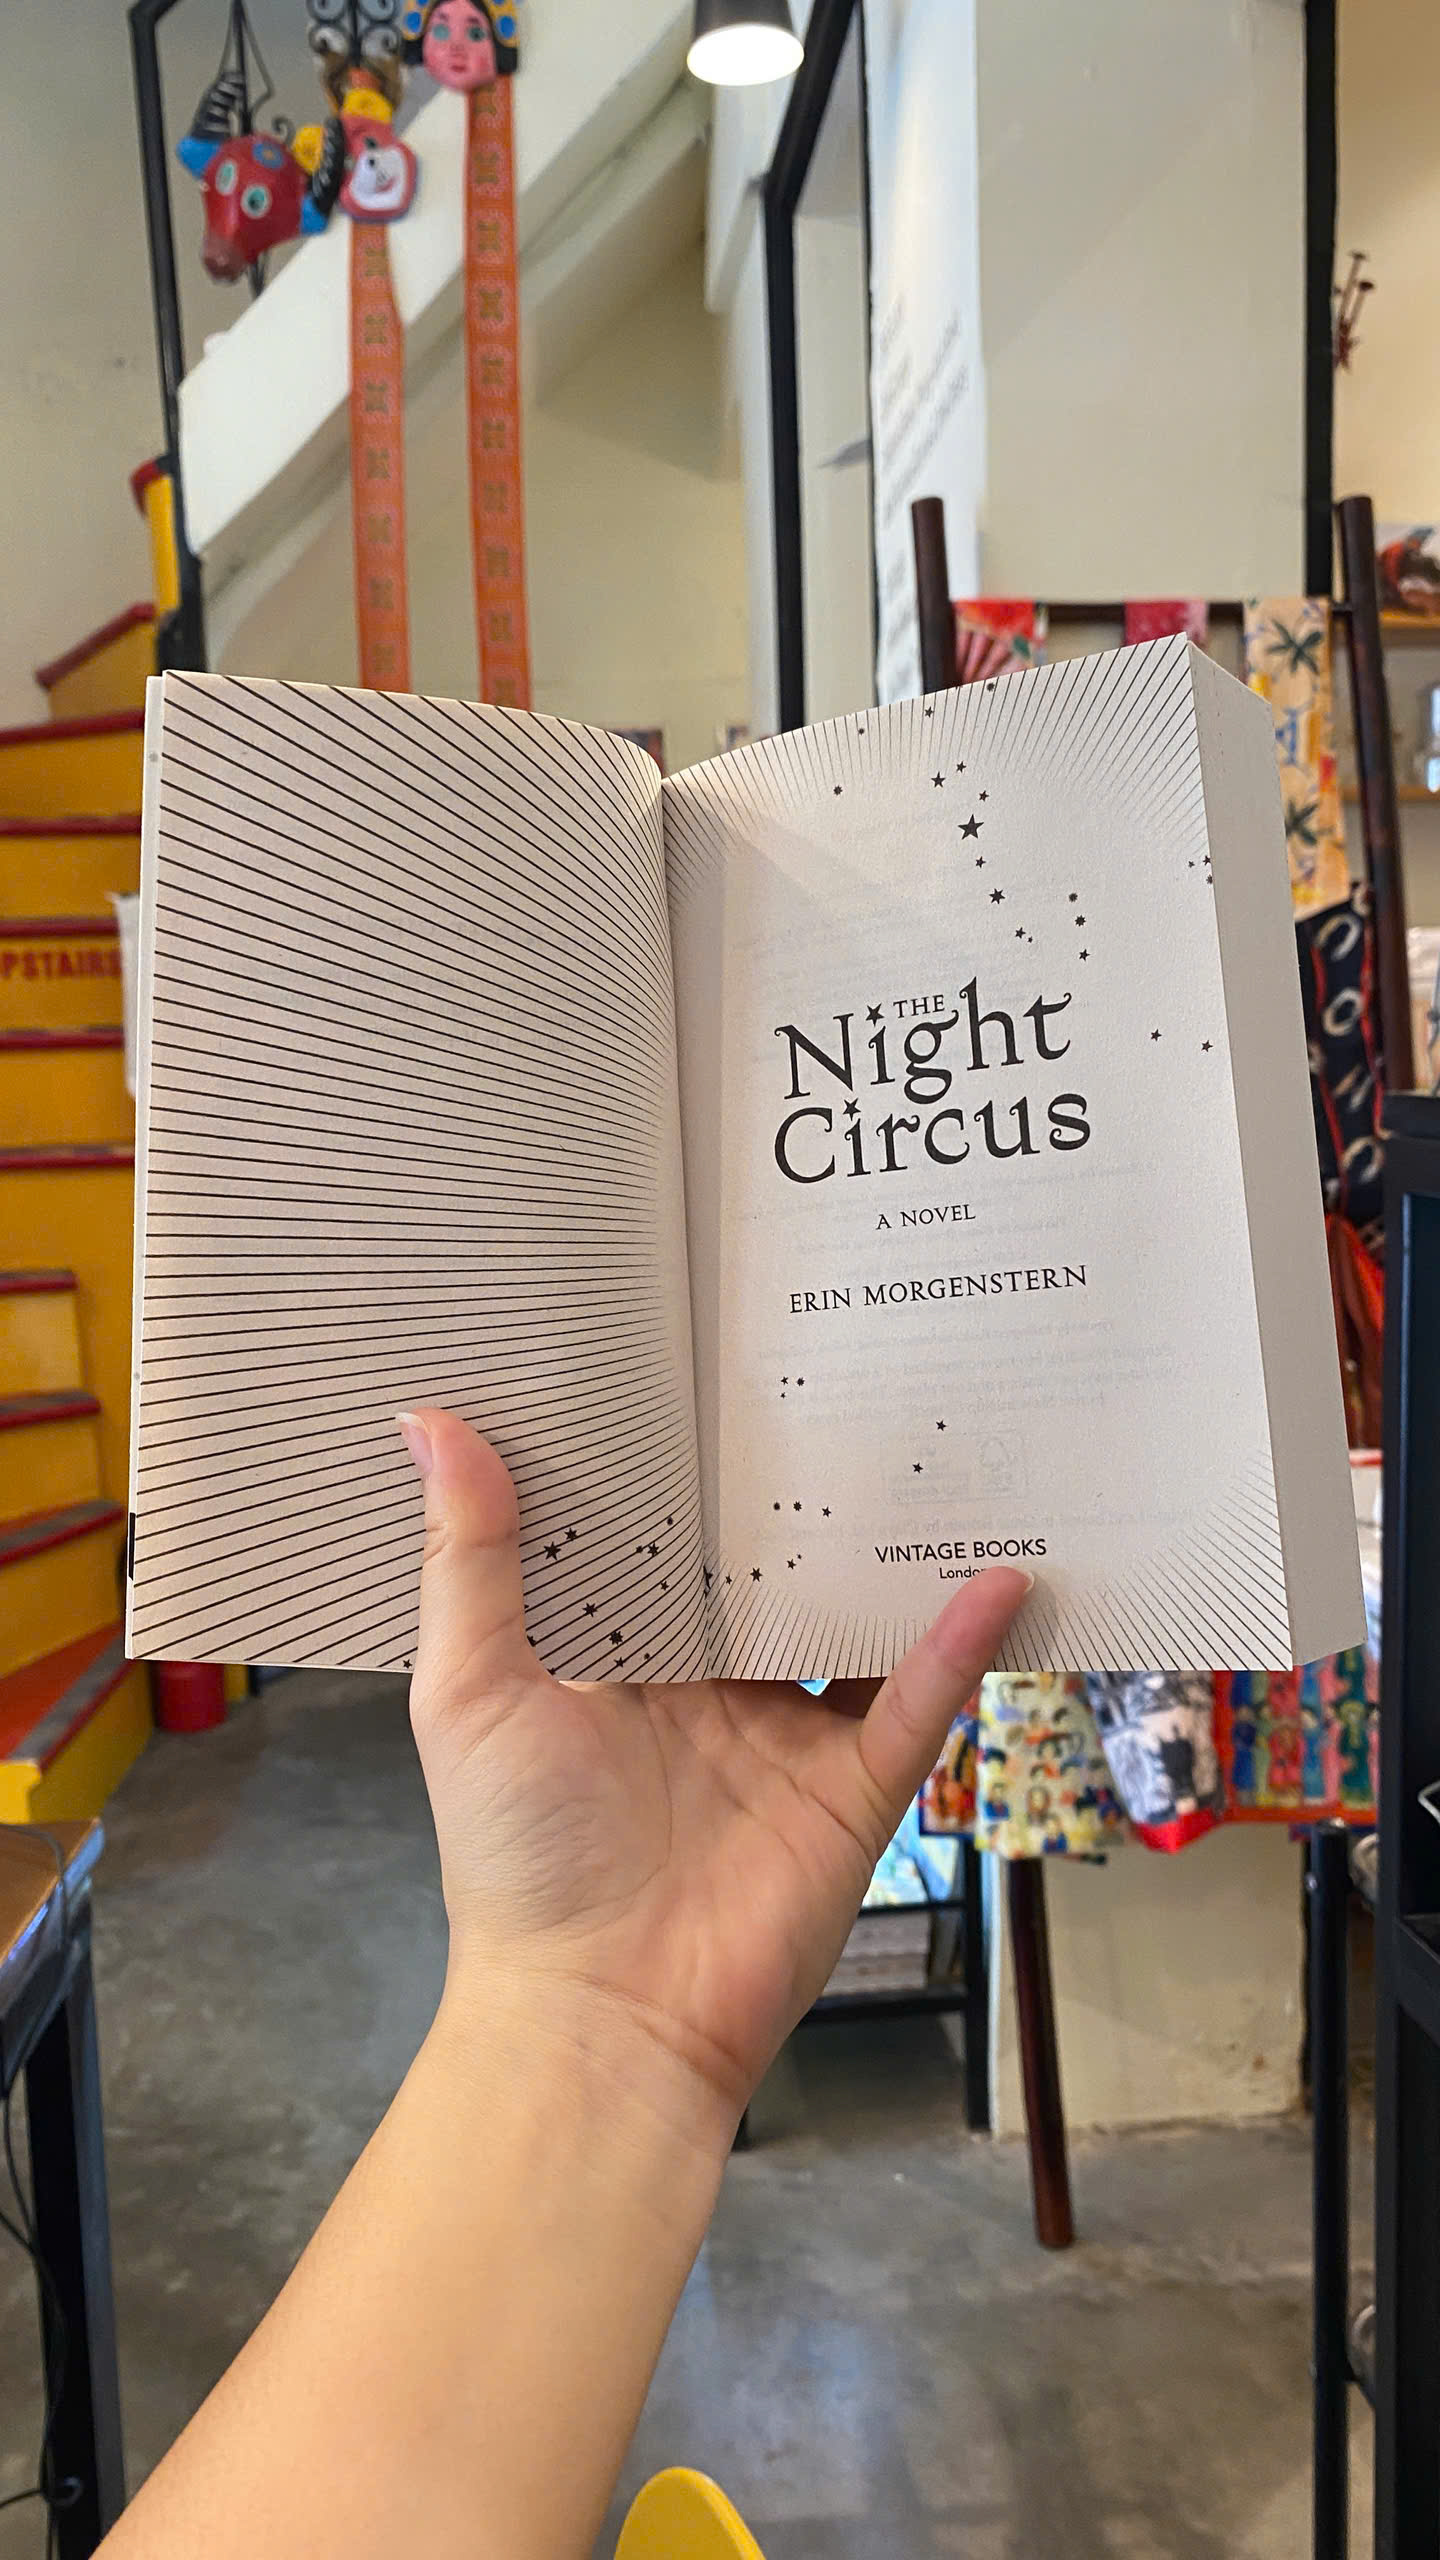 PSTAIRS
THE
Night
Circus
A NOVEL
ERIN MORGENSTERN
VINTAGE BOOKS
Londo